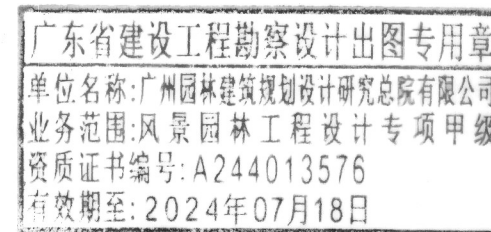 广东省建设工程勘察设计出图专用章
单位名称:广州园林建筑规划设计研究总院有限公司
业务范围:风景园林工程设计专项甲级
资质证书编号:A244013576
有效期至:2024年07月18日